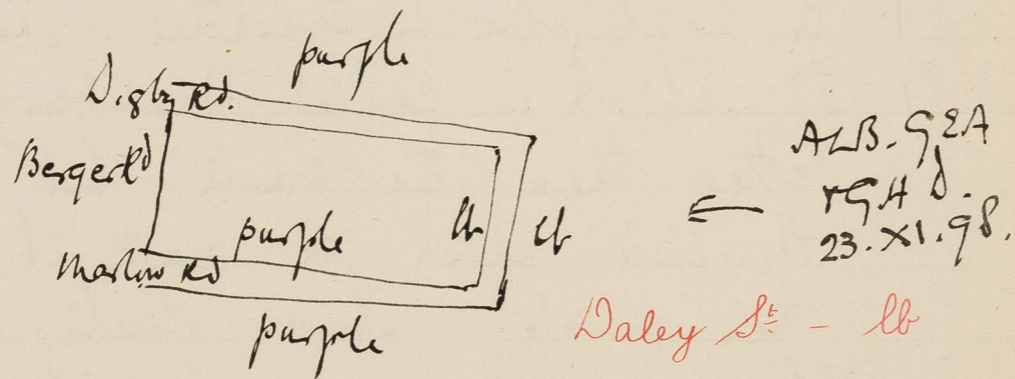 purple
Digby Rd.
Berger Rd
purple
lb
lb
Marlow Rd
purple
ALB. GEA
+ GH D.
23. XI. 98.
Daley St - lb